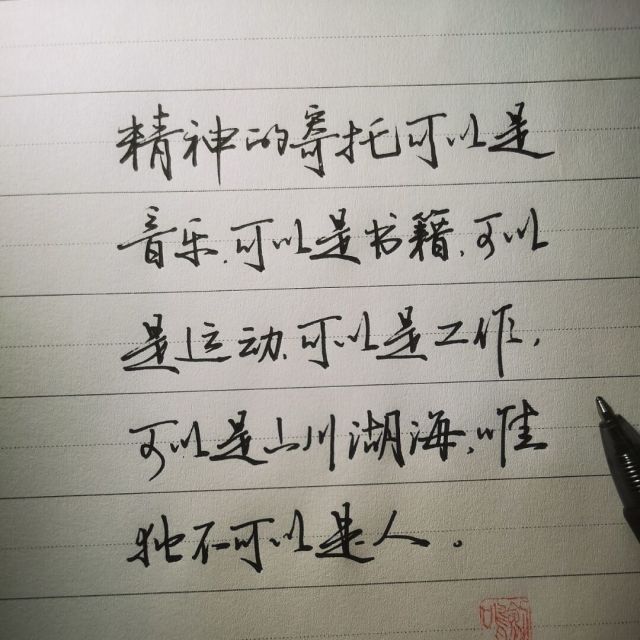 精神的寄托可以是
音乐,可以是书籍,可以
是运动,可以是工作,
可以是山川湖海,唯
独不可以是人。